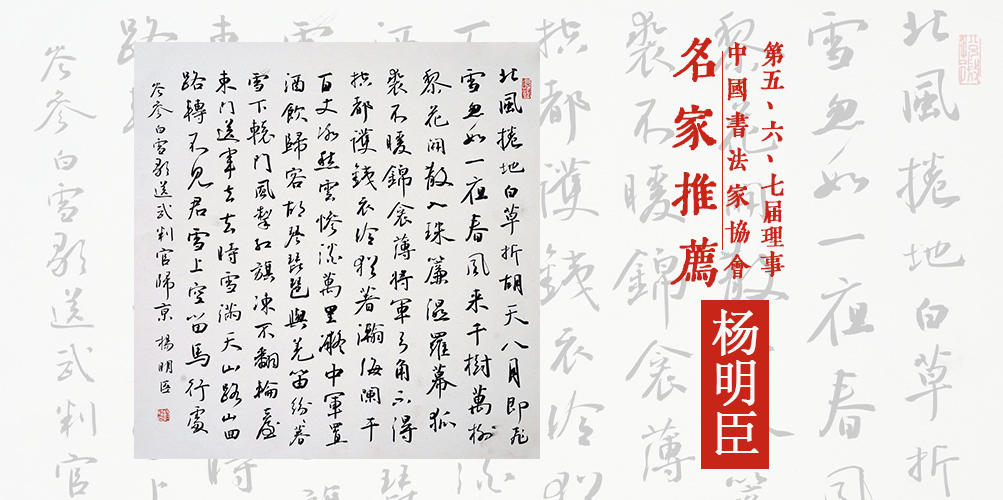 第五、六、七届理事
中國書法家協會
名家推薦
杨明臣
北風捲地白草折胡天八月即飛
雪忽如一夜春風来千樹萬樹
黎花開散入珠簾濕羅幕狐
裘不暖錦衾薄将軍弓角不得
控都護鐵衣冷猶著瀚海闌干
百丈冰愁雲慘淡萬里凝中軍置
酒飲歸客胡琴琵琶與羌笛紛暮
雪下轅門風掣紅旗凍不翻輪臺
東門送君去去時雪滿天山路山回
路轉不見君雪上空留馬行處
岑參白雪歌送武判官歸京 楊明臣